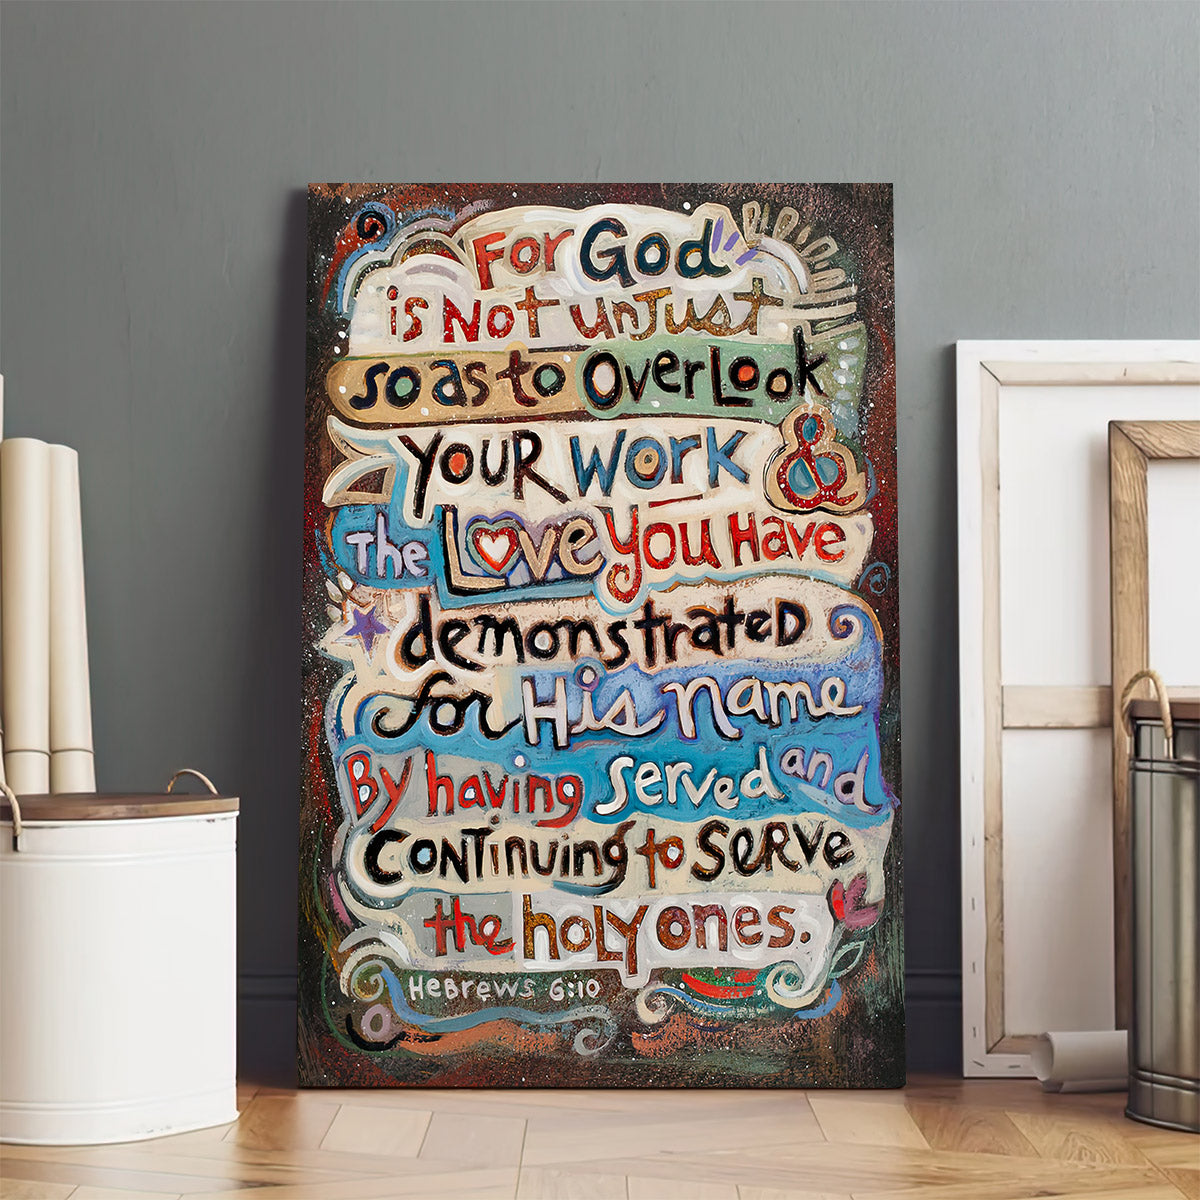 For God
is Not unJust
so as to OverLook
YOUR WORK &
The Love You Have
demonstrateD
for His name
By having served and
CONTinuing to SERVE
the holy ones.
HeBrews 6:10